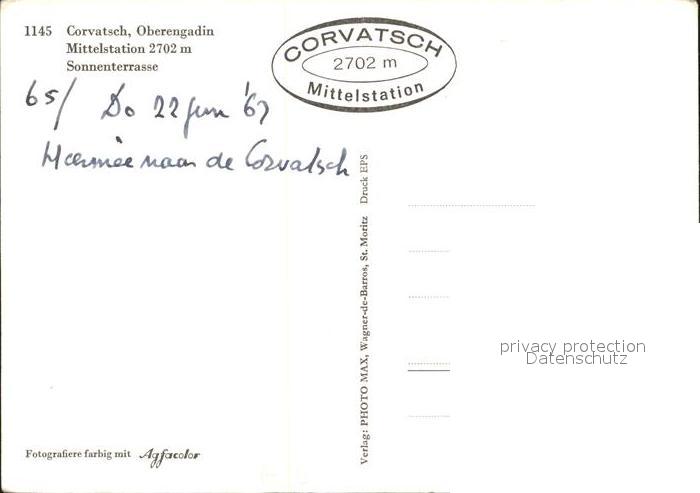 1145 Corvatsch, Oberengadin
Mittelstation 2702 m
Sonnenterrasse
CORVATSCH
2702 m
Mittelstation
65/ Do 22 Jun '67
Hiermee naar de Corvatsch
Verlag: PHOTO MAX, Wagner-de-Barros, St. Moritz Druck EPS
privacy protection
Datenschutz
Fotografiere farbig mit Agfacolor